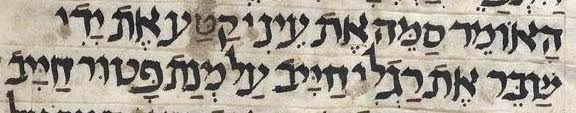 האומר סמה את עיני קטע את ידי
שבר את רגלי חייב על מנת פטור חייב